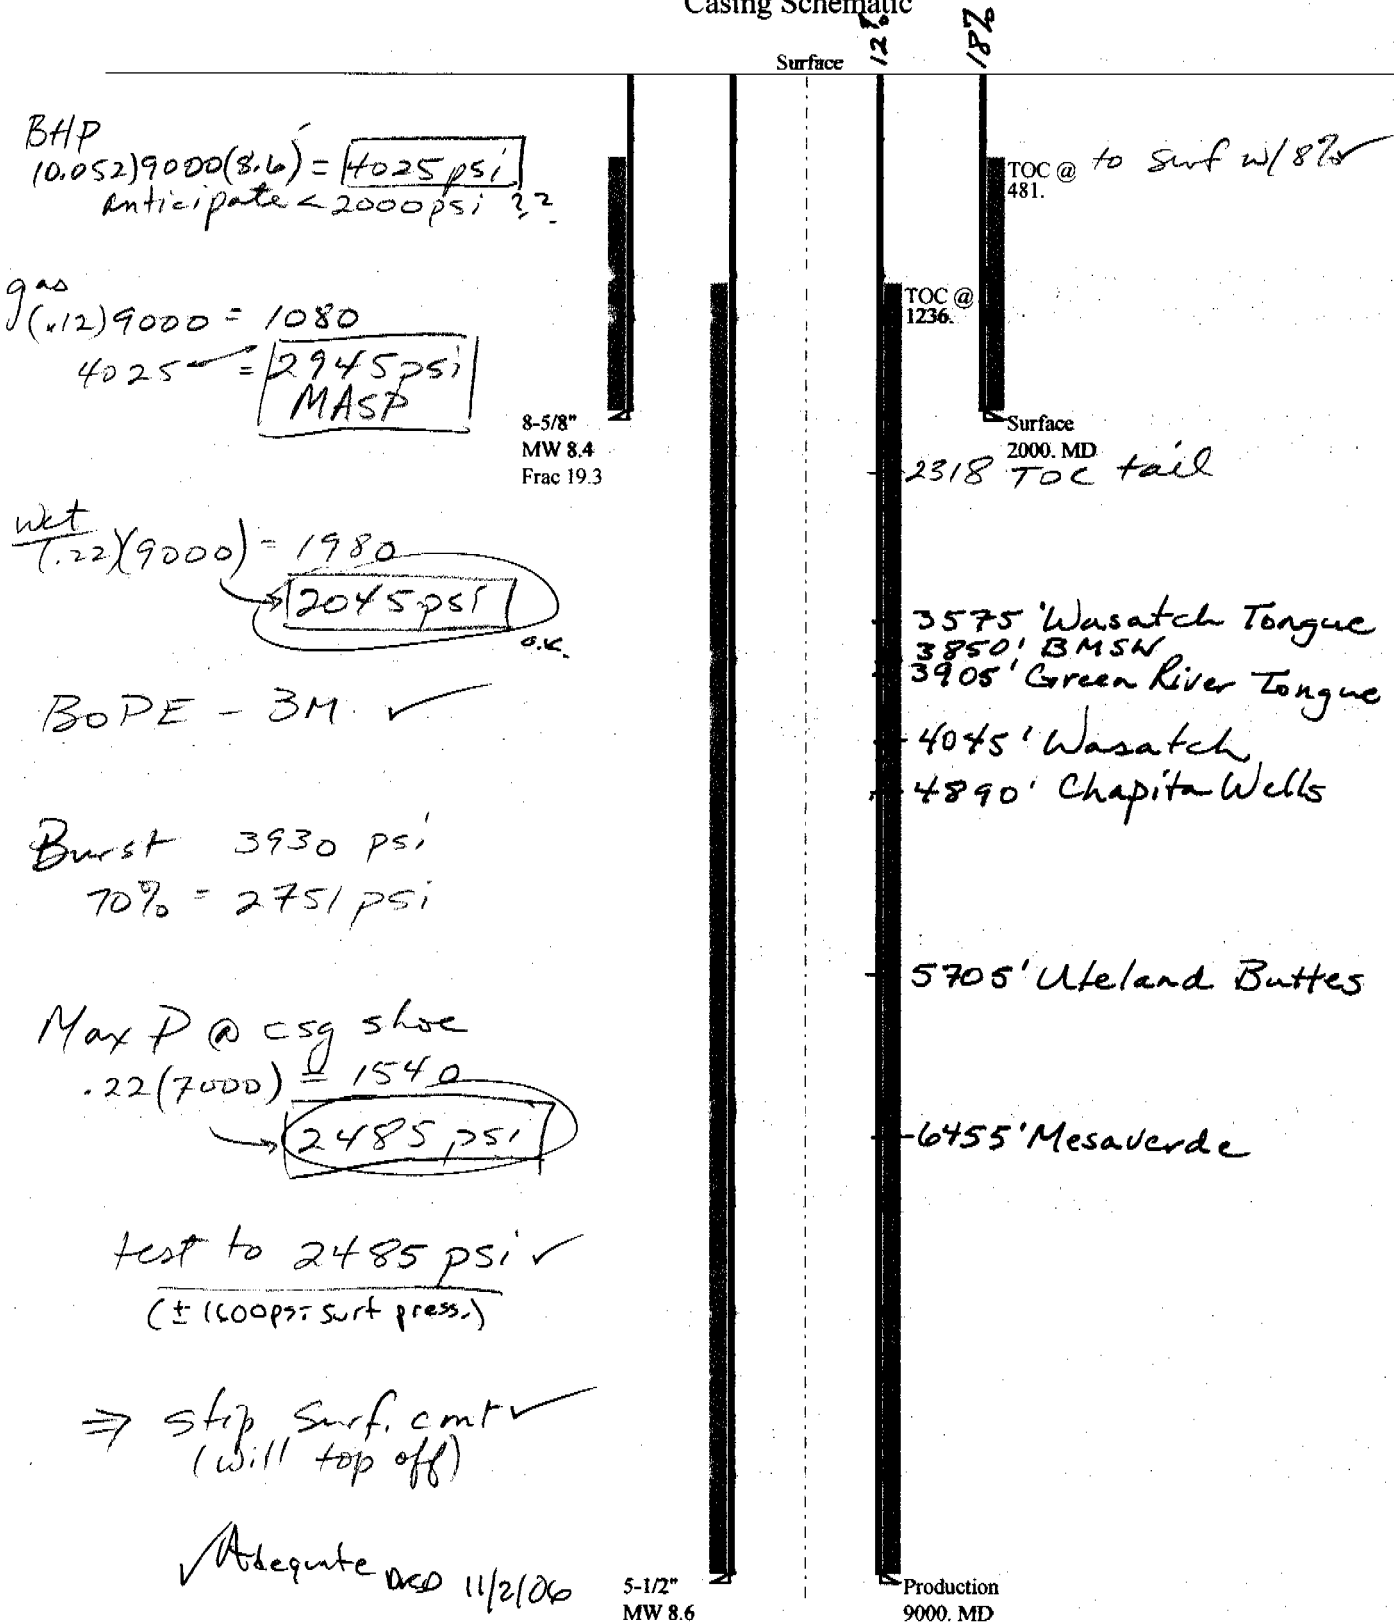 Casing Schematic
12%
18%
Surface
BHP
(0.052)9000(8.6) = 4025 psi
anticipate < 2000 psi ??
gas
(.12)9000 = 1080
4025 = 2945 psi
MASP
wet
(.22)(9000) = 1980
2045 psi
O.K.
BOPE - 3M ✓
Burst 3930 psi
70% = 2751 psi
Max P @ csg shoe
.22(7000) = 1540
2485 psi
test to 2485 psi ✓
(± 1600psi surf press.)
⇒ stip surf. cmt ✓
(will top off)
✓ Adequate DKD 11/2/06
TOC @
481.
to surf w/8% ✓
TOC @
1236.
8-5/8"
MW 8.4
Frac 19.3
Surface
2000. MD
2318 TOC tail
3575' Wasatch Tongue
3850' BMSW
3905' Green River Tongue
4045' Wasatch
4890' Chapita Wells
5705' Uteland Buttes
6455' Mesaverde
5-1/2"
MW 8.6
Production
9000. MD